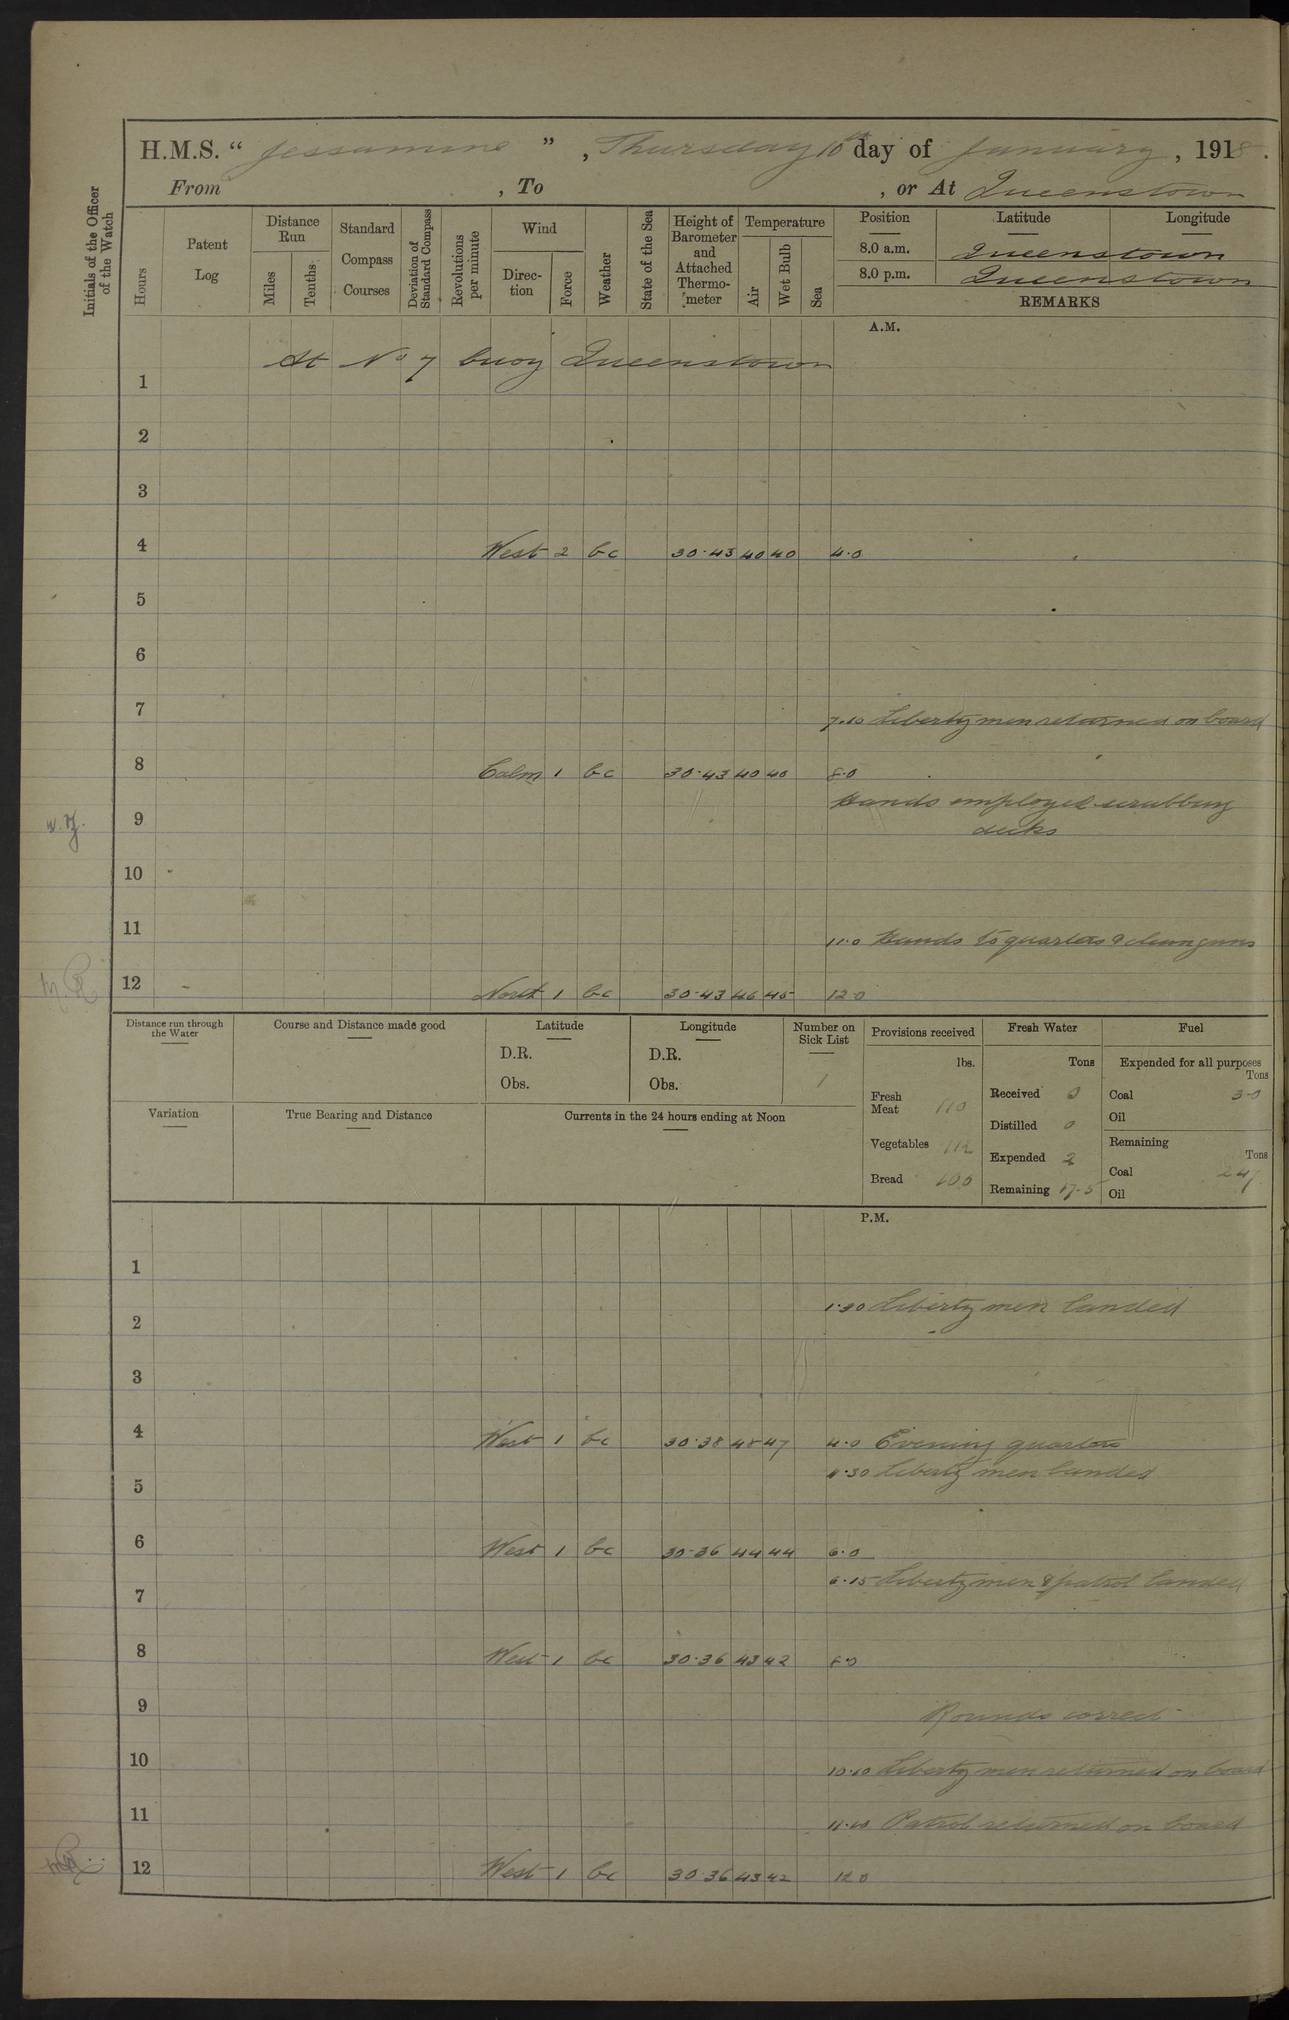 H.M.S. “ Jessamine ” , Thursday 10th day of January , 1918 .
From , To , or At Queenstown
Initials of the Officer of the Watch
Hours
Patent Log
Distance Run
Miles
Tenths
Standard Compass Courses
Deviation of Standard Compass
Revolutions per minute
Wind
Direction
Force
Weather
State of the Sea
Height of Barometer and Attached Thermometer
Temperature
Air
Wet Bulb
Sea
Position Latitude Longitude
8.0 a.m. Queenstown
8.0 p.m. Queenstown
REMARKS
A.M.
At No 7 buoy Queenstown
1
2
3
4 West 2 bc 30.43 40 40 4.0
5
6
7
7.10 Liberty men returned on board
8 Calm 1 bc 30.43 40 40 8.0
Hands employed scrubbing
9 decks
10
11 11.0 Hands to quarters & clean guns
12 North 1 bc 30.43 46 45 12.0
Distance run through the Water
Course and Distance made good
Latitude
D.R.
Obs.
Longitude
D.R.
Obs.
Number on Sick List
1
Provisions received
lbs.
Fresh Meat 110
Vegetables 112
Bread 100
Fresh Water
Tons
Received 0
Distilled 0
Expended 2
Remaining 17.5
Fuel
Expended for all purposes
Tons
Coal 3.0
Oil
Remaining
Tons
Coal 247
Oil
Variation
True Bearing and Distance
Currents in the 24 hours ending at Noon
P.M.
1
1.30 Liberty men landed
2
3
4 West 1 bc 30.38 48 47 4.0 Evening quarters
4.30 Liberty men landed
5
6 West 1 bc 30.36 44 44 6.0
6.15 Liberty men & patrol landed
7
8 West 1 bc 30.36 43 42 8.0
9 Rounds correct
10 10.10 Liberty men returned on board
11 11.10 Patrol returned on board
12 West 1 bc 30.36 43 42 12.0